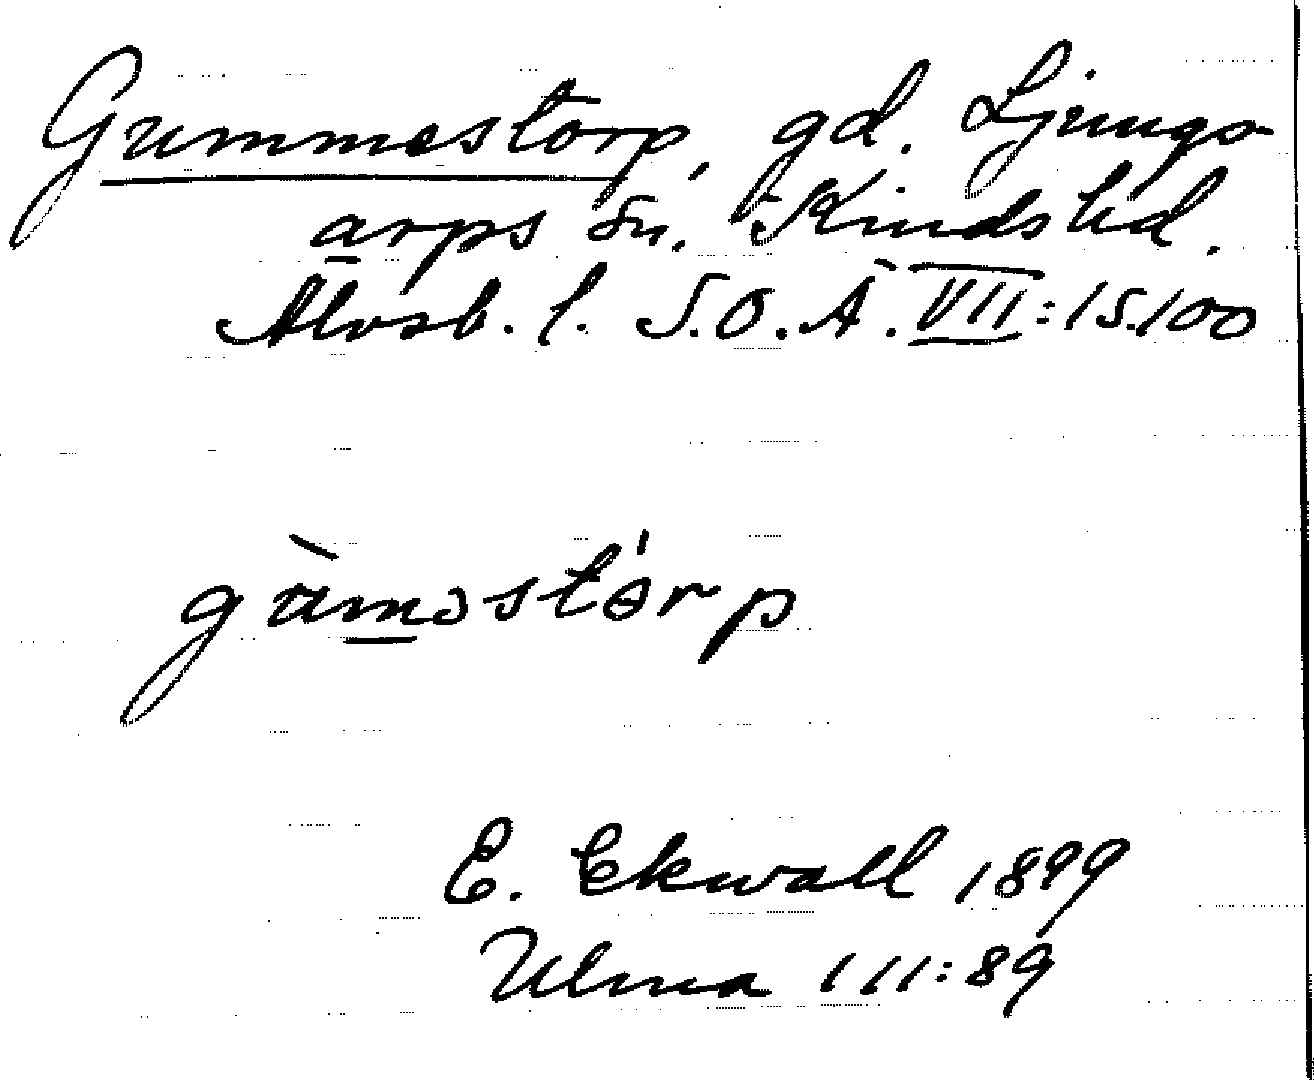 Gummestorp, gd. Ljungs-
arps sn. Kinds hd.
Älvsb. l. S.O.Ä. VII:1 S.100
gùməstórp
E. Ekwall 1899
Ulma 111:89